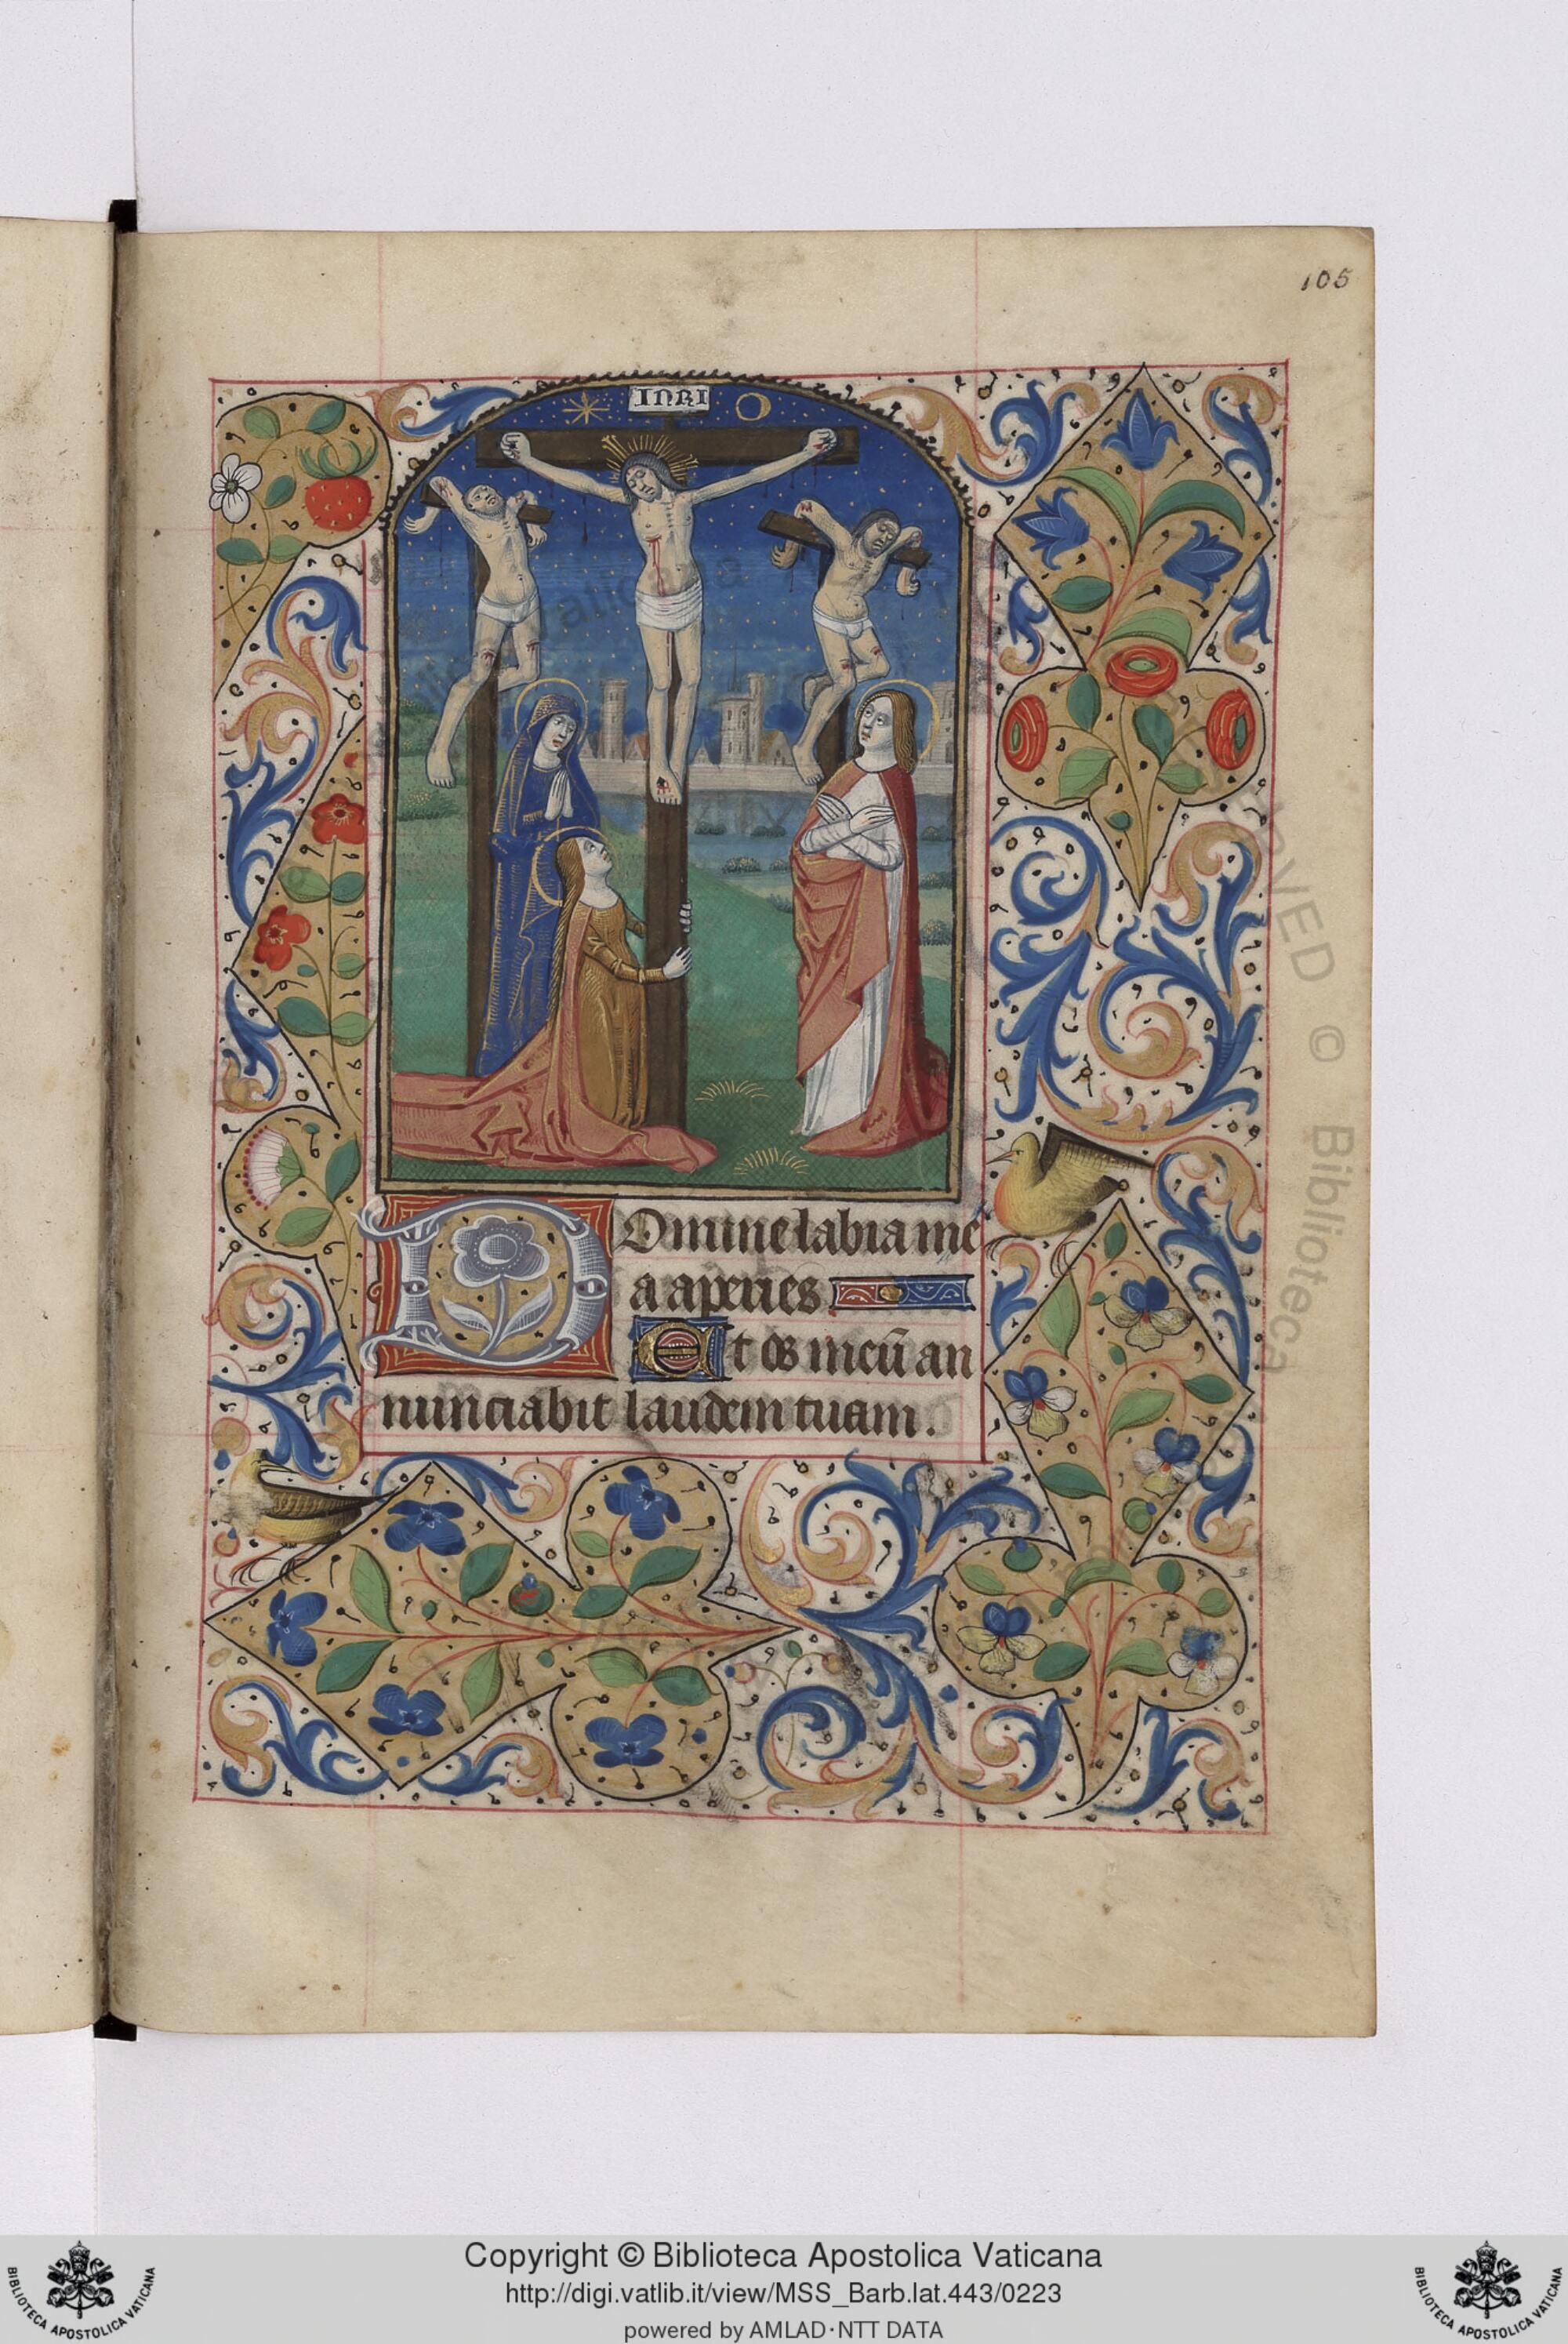 105
INRI
Domine labia me
a aperies
Et os meū an
nunciabit laudem tuam.
Copyright © Biblioteca Apostolica Vaticana
http://digi.vatlib.it/view/MSS_Barb.lat.443/0223
powered by AMLAD·NTT DATA
BIBLIOTECA APOSTOLICA VATICANA
BIBLIOTECA APOSTOLICA VATICANA